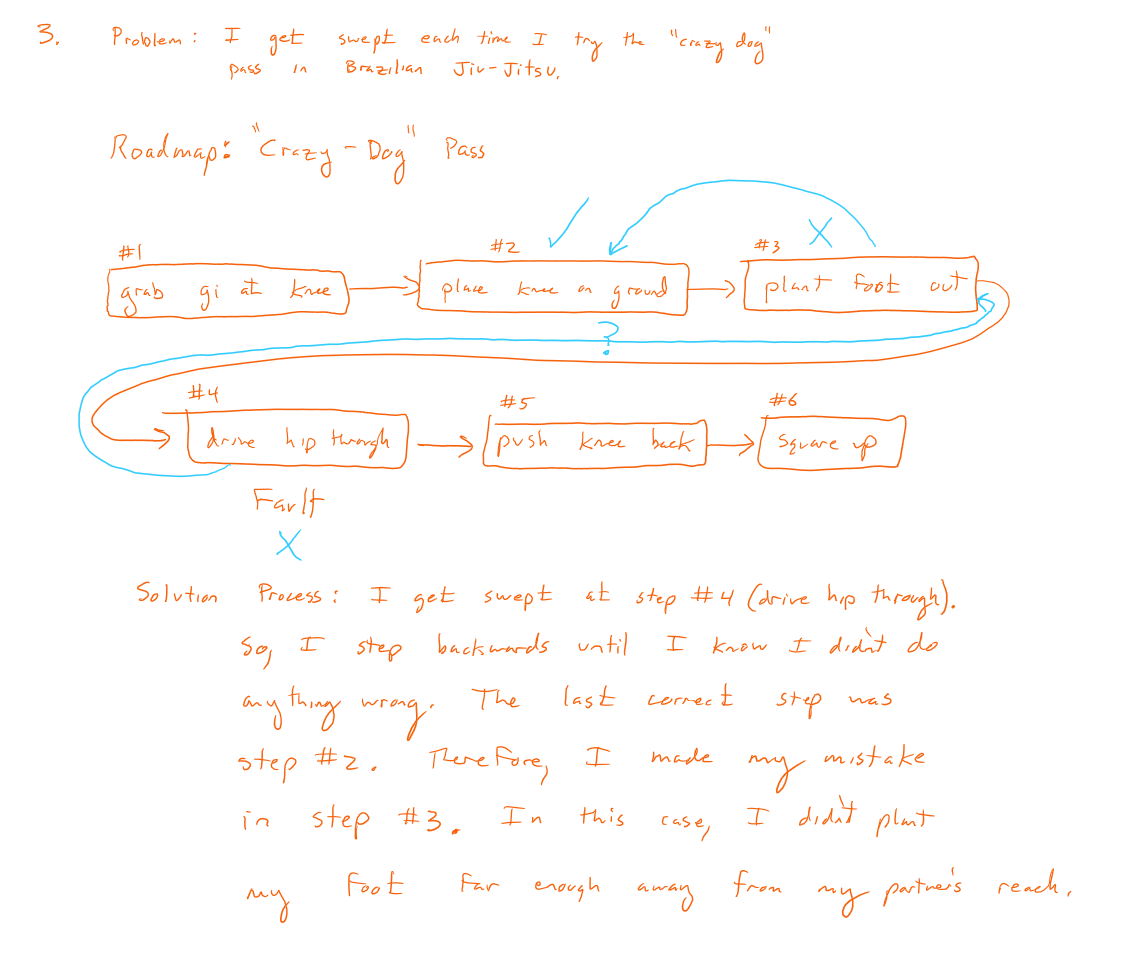 3. Problem: I get swept each time I try the "crazy dog"
pass in Brazilian Jiu-Jitsu.
Roadmap: "Crazy-Dog" Pass
X
#1 #2 #3
grab gi at knee place knee on ground plant foot out
?
#4 #5 #6
drive hip through push knee back square up
Fault
X
Solution Process: I get swept at step #4 (drive hip through).
So, I step backwards until I know I didn't do
anything wrong. The last correct step was
step #2. Therefore, I made my mistake
in step #3. In this case, I didn't plant
my foot far enough away from my partner's reach.